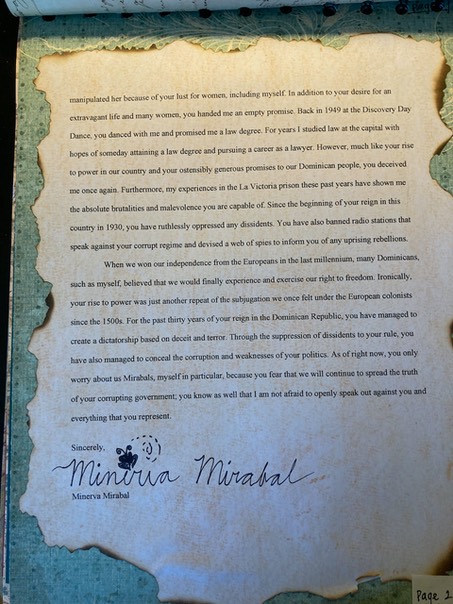 manipulated her because of your lust for women, including myself. In addition to your desire for an
extravagant life and many women, you handed me an empty promise. Back in 1949 at the Discovery Day
Dance, you danced with me and promised me a law degree. For years I studied law at the capital with
hopes of someday attaining a law degree and pursuing a career as a lawyer. However, much like your rise
to power in our country and your ostensibly generous promises to our Dominican people, you deceived
me once again. Furthermore, my experiences in the La Victoria prison these past years have shown me
the absolute brutalities and malevolence you are capable of. Since the beginning of your reign in this
country in 1930, you have ruthlessly oppressed any dissidents. You have also banned radio stations that
speak against your corrupt regime and devised a web of spies to inform you of any uprising rebellions.
When we won our independence from the Europeans in the last millennium, many Dominicans,
such as myself, believed that we would finally experience and exercise our right to freedom. Ironically,
your rise to power was just another repeat of the subjugation we once felt under the European colonists
since the 1500s. For the past thirty years of your reign in the Dominican Republic, you have managed to
create a dictatorship based on deceit and terror. Through the suppression of dissidents to your rule, you
have also managed to conceal the corruption and weaknesses of your politics. As of right now, you only
worry about us Mirabals, myself in particular, because you fear that we will continue to spread the truth
of your corrupting government; you know as well that I am not afraid to openly speak out against you and
everything that you represent.
Sincerely,
Minerva Mirabal
Minerva Mirabal
Page 2